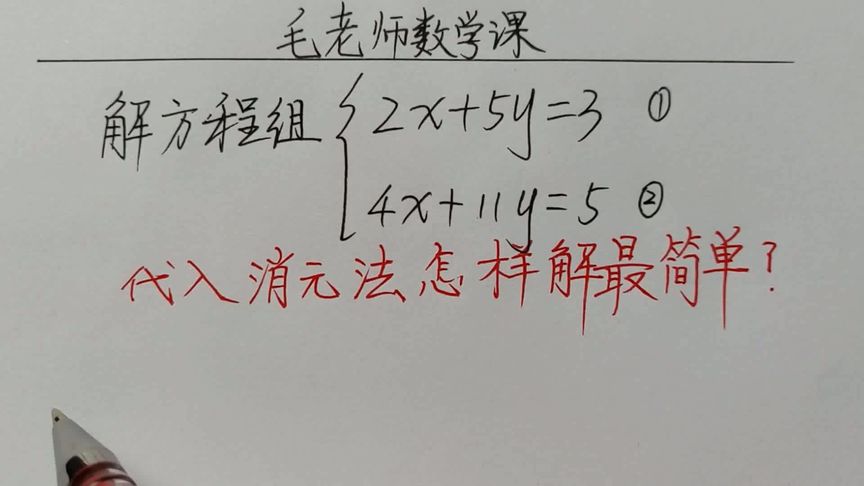 毛老师数学课
解方程组 { 2x+5y=3 ①
4x+11y=5 ②
代入消元法怎样解最简单?